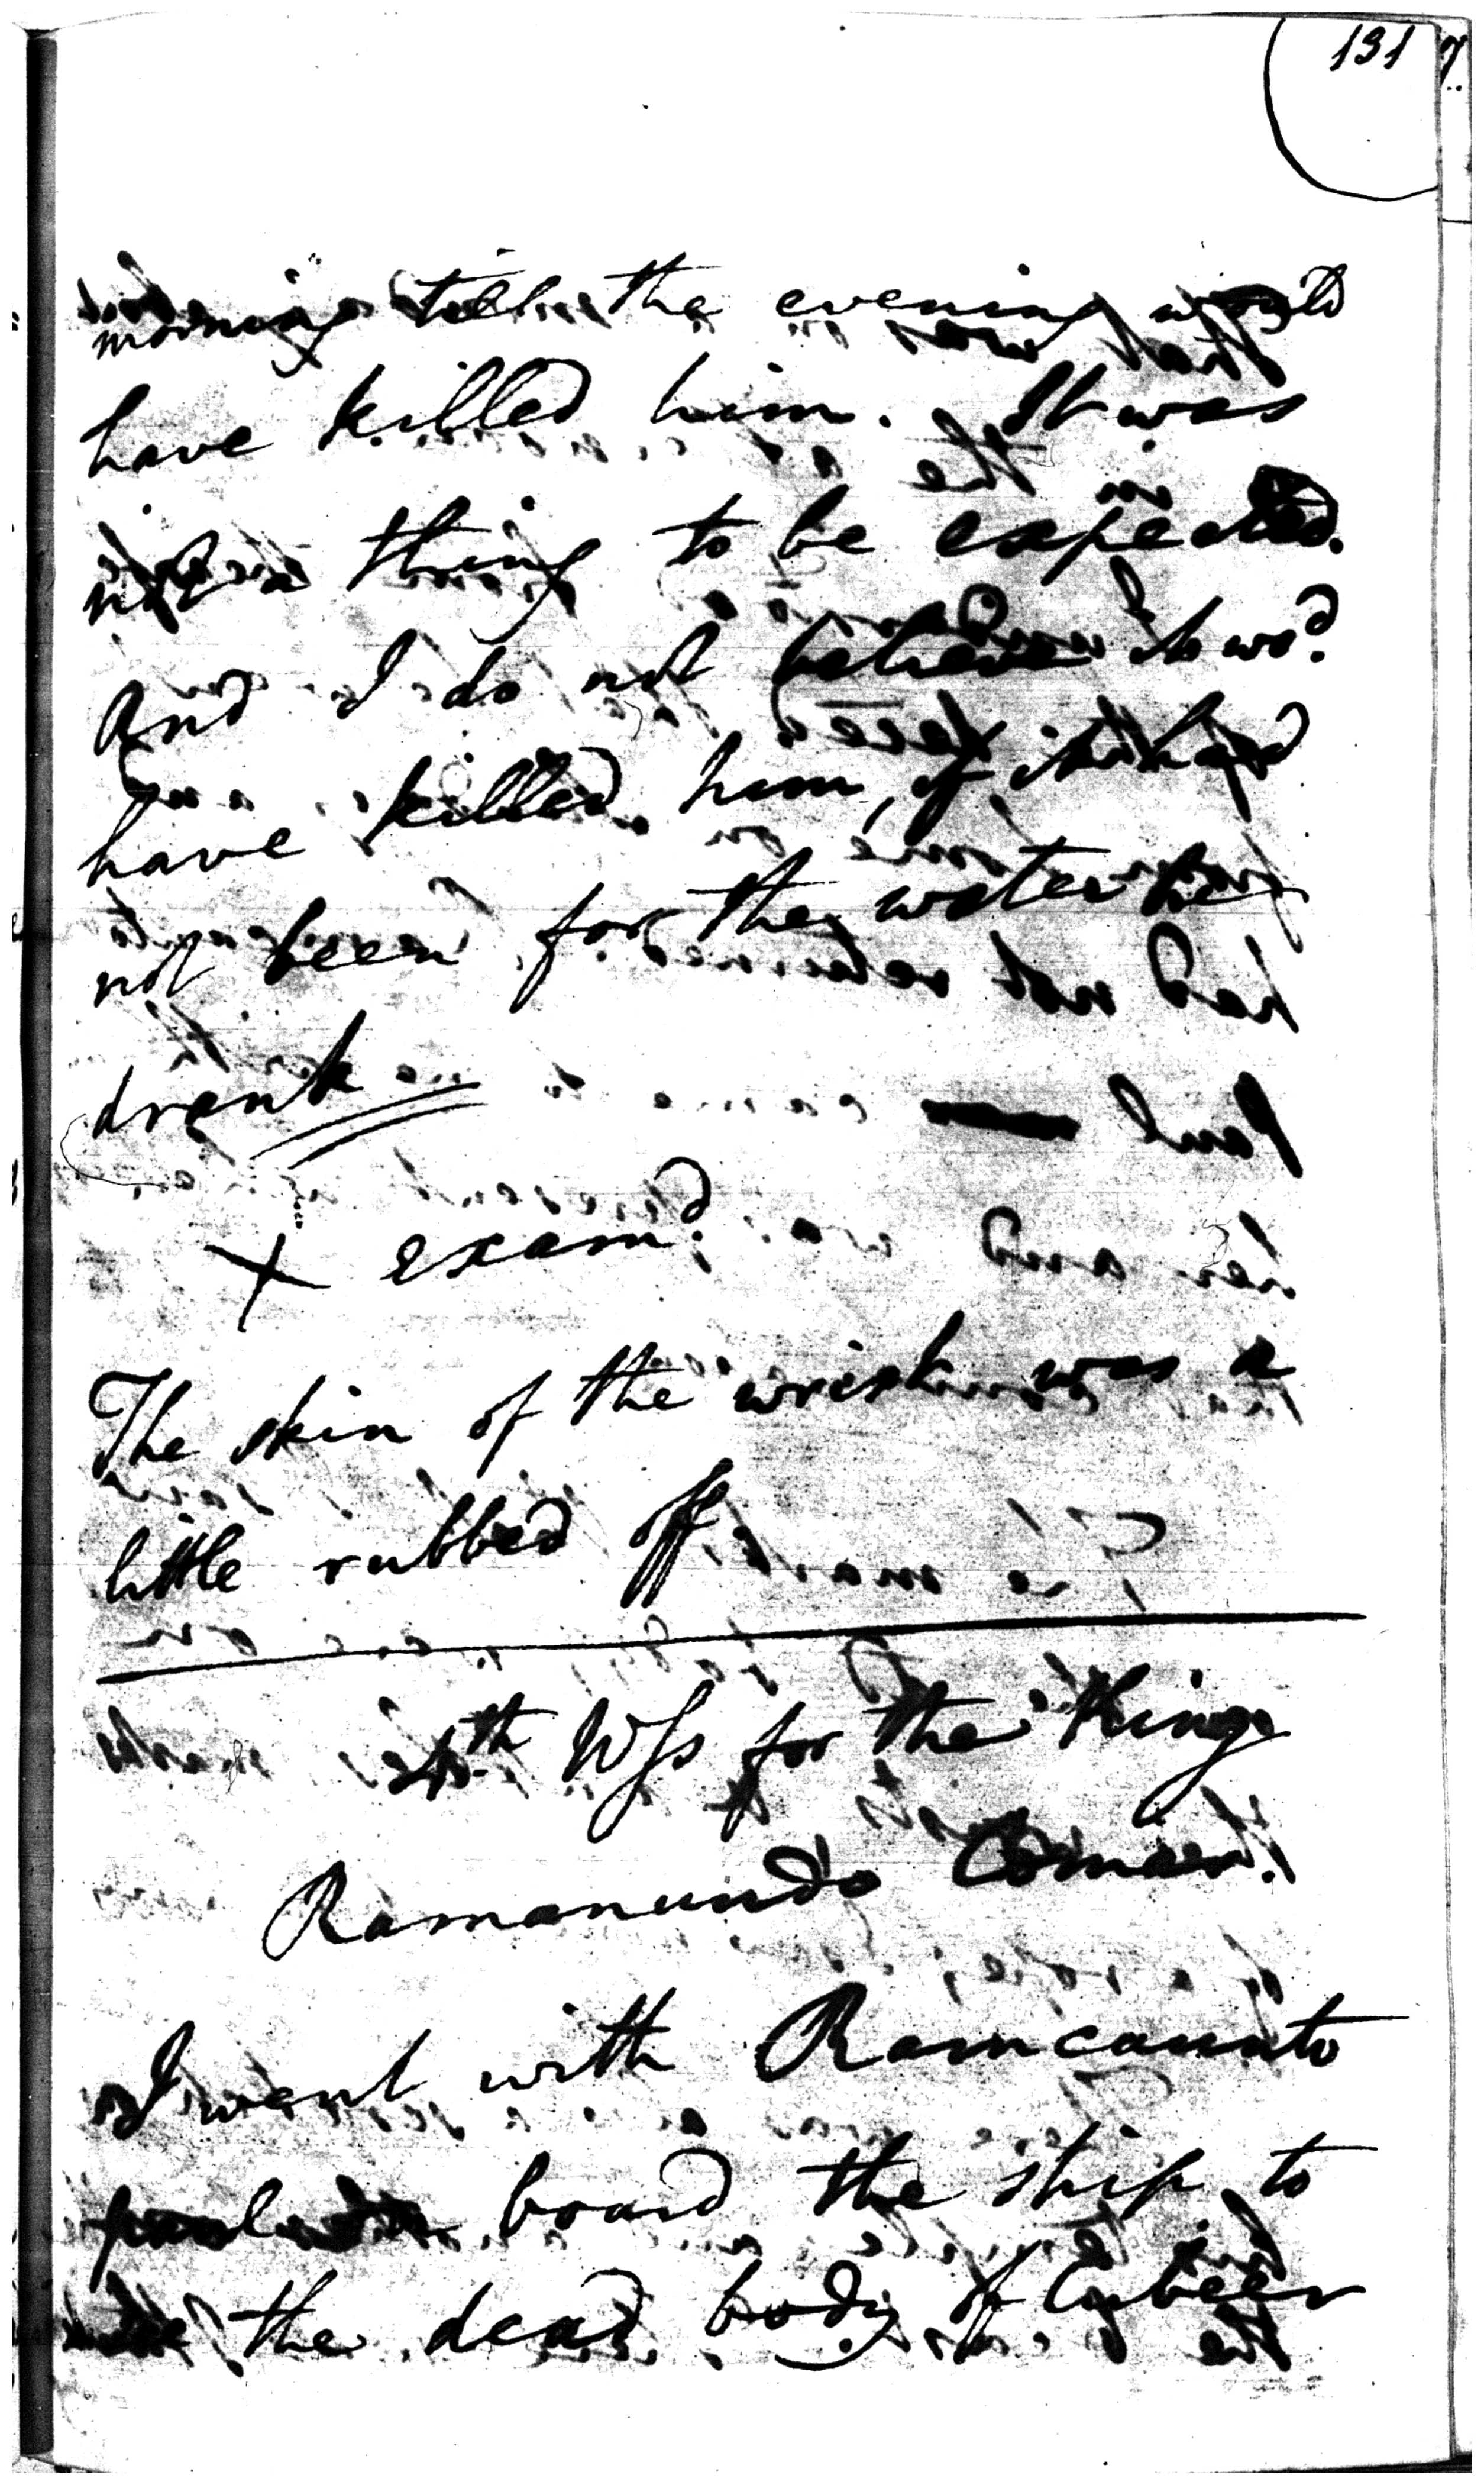 131
morning till the evening would
have killed him. It was
not a thing to be expected.
And I do not believe it wod.
have killed him, if it had
not been for the water he
drank
X examd.
The skin of the wrist was a
little rubbed off
4th Wss for the King
Ramanundo Comar.
I went with Ramcaunto
board the ship to
the dead body of Cubeer